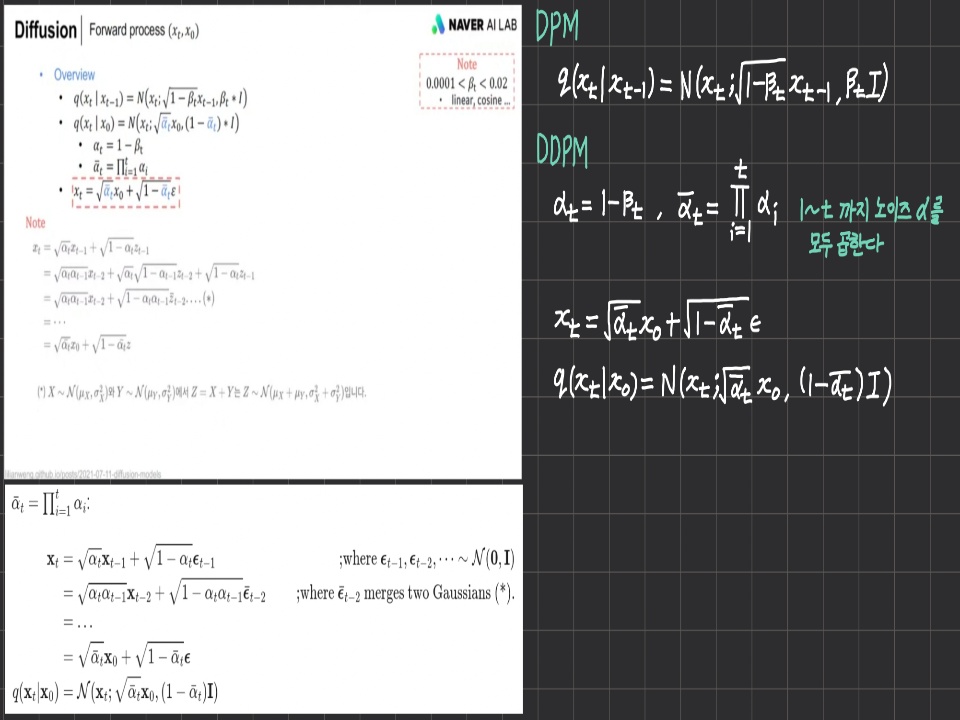 Diffusion | Forward process (x_t, x_0)
NAVER AI LAB
Note
0.0001 < β_t < 0.02
• linear, cosine ...
• Overview
• q(x_t | x_{t−1}) = N(x_t; √(1 − β_t) x_{t−1}, β_t * I)
• q(x_t | x_0) = N(x_t; √(ᾱ_t) x_0, (1 − ᾱ_t) * I)
• α_t = 1 − β_t
• ᾱ_t = ∏_{i=1}^{t} α_i
• x_t = √(ᾱ_t) x_0 + √(1 − ᾱ_t) ε
Note
x_t = √(α_t) x_{t−1} + √(1 − α_t) z_{t−1}
= √(α_t α_{t−1}) x_{t−2} + √(α_t) √(1 − α_{t−1}) z_{t−2} + √(1 − α_t) z_{t−1}
= √(α_t α_{t−1}) x_{t−2} + √(1 − α_t α_{t−1}) z̄_{t−2} .... (*)
= ⋯
= √(ᾱ_t) x_0 + √(1 − ᾱ_t) z
(*) X ~ N(μ_X, σ_X^2)와 Y ~ N(μ_Y, σ_Y^2)에서 Z = X + Y는 Z ~ N(μ_X + μ_Y, σ_X^2 + σ_Y^2)입니다.
lilianweng.github.io/posts/2021-07-11-diffusion-models
ᾱ_t = ∏_{i=1}^{t} α_i:
x_t = √(α_t) x_{t−1} + √(1 − α_t) ε_{t−1} ;where ε_{t−1}, ε_{t−2}, ⋯ ~ N(0, I)
= √(α_t α_{t−1}) x_{t−2} + √(1 − α_t α_{t−1}) ε̄_{t−2} ;where ε̄_{t−2} merges two Gaussians (*).
= …
= √(ᾱ_t) x_0 + √(1 − ᾱ_t) ε
q(x_t|x_0) = N(x_t; √(ᾱ_t) x_0, (1 − ᾱ_t)I)
DPM
q(x_t|x_{t−1}) = N(x_t; √(1−β_t) x_{t−1}, β_t I)
DDPM
α_t = 1−β_t , ᾱ_t = ∏_{i=1}^{t} α_i 1~t 까지 노이즈 α를
모두 곱한다
x_t = √(ᾱ_t) x_0 + √(1−ᾱ_t) ε
q(x_t|x_0) = N(x_t; √(ᾱ_t) x_0, (1−ᾱ_t) I)